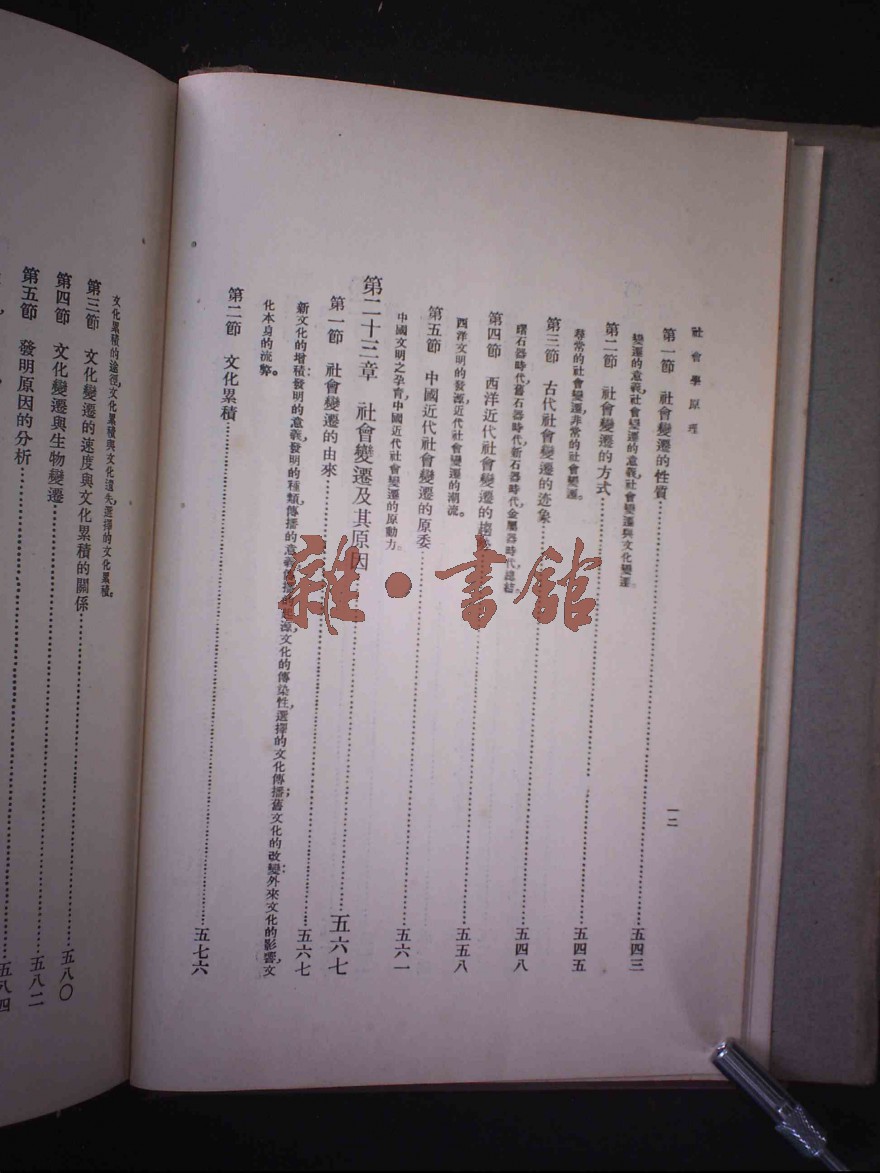 社會學原理
一二
第一節 社會變遷的性質…………五四三
變遷的意義，社會變遷的意義，社會變遷與文化變遷。
第二節 社會變遷的方式…………五四五
尋常的社會變遷，非常的社會變遷。
第三節 古代社會變遷的迹象…………五四八
曙石器時代，舊石器時代，新石器時代，金屬器時代，總結
第四節 西洋近代社會變遷的趨勢…………五五八
西洋文明的發源，近代社會變遷的潮流。
第五節 中國近代社會變遷的原委…………五六一
中國文明之孕育，中國近代社會變遷的原動力。
第二十三章 社會變遷及其原因…………五六七
第一節 社會變遷的由來…………五六七
新文化的增積：發明的意義，發明的種類，傳播的意義，傳播的起源，文化的傳染性，選擇的文化傳播；舊文化的改變：外來文化的影響，文
化本身的流弊。
第二節 文化累積…………五七六
文化累積的途徑，文化累積與文化遺失，選擇的文化累積。
第三節 文化變遷的速度與文化累積的關係…………五八〇
第四節 文化變遷與生物變遷…………五八二
第五節 發明原因的分析…………五八四
雜·書館